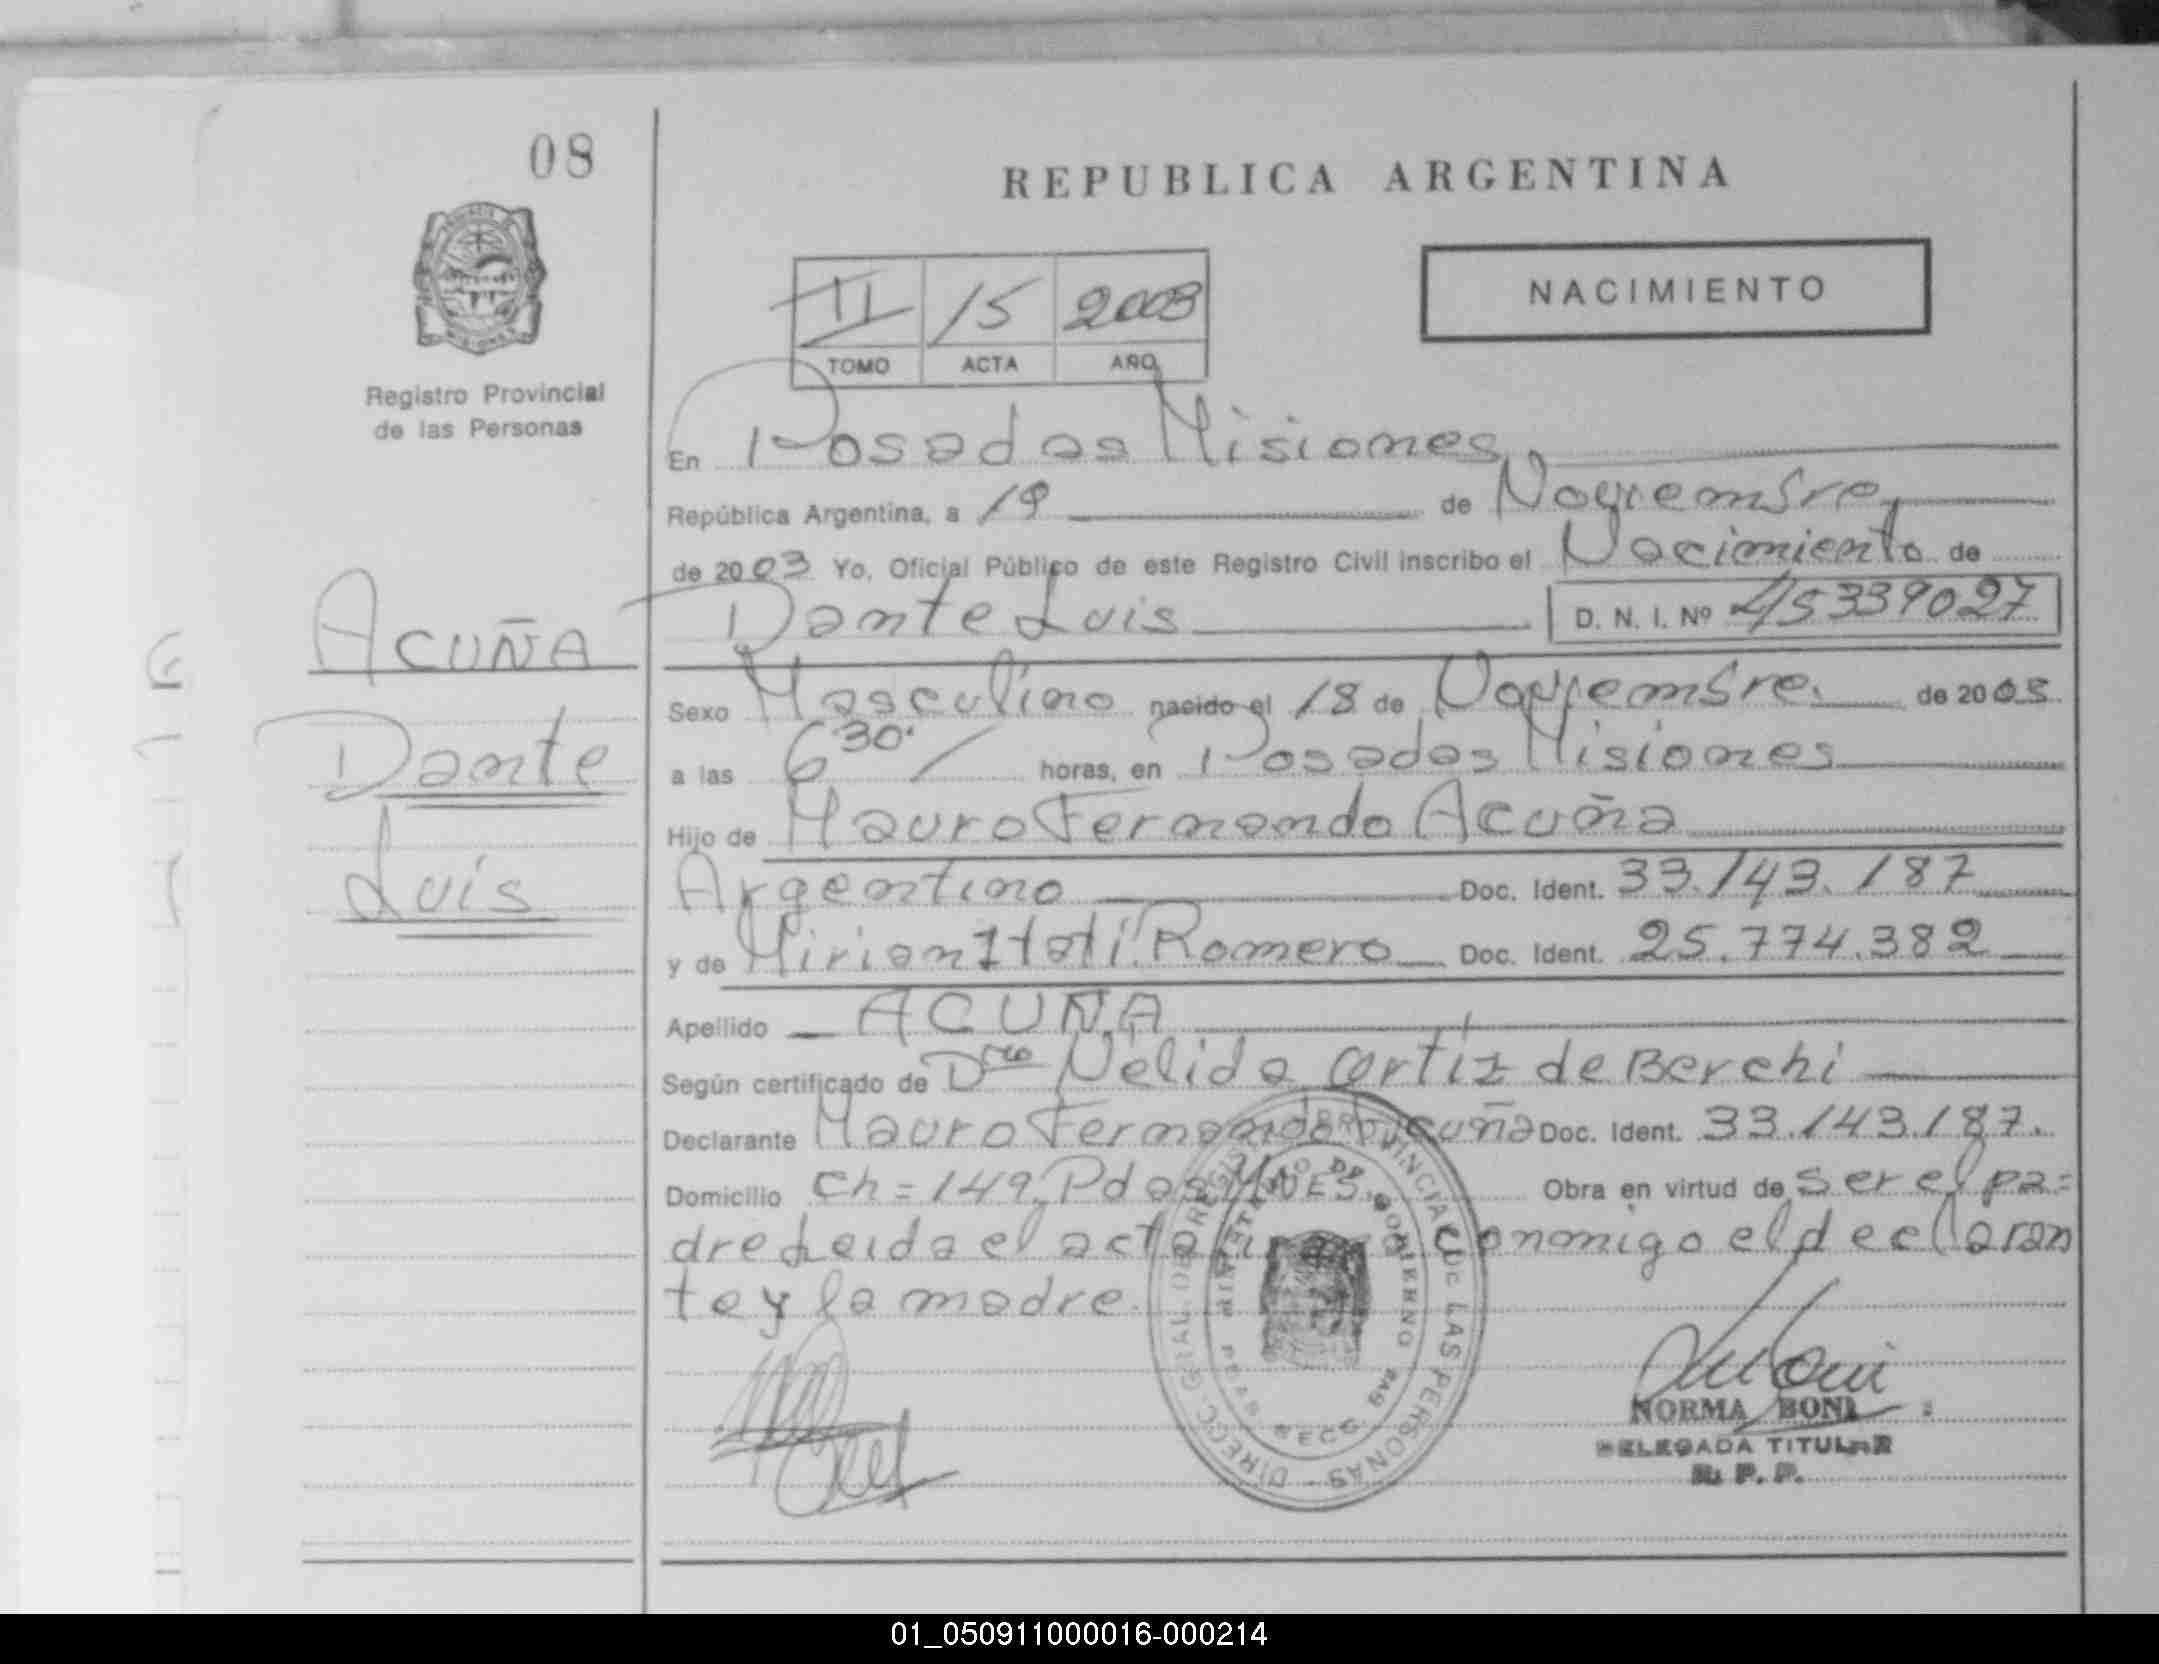 08
REPUBLICA ARGENTINA
NACIMIENTO
II 15 2003
TOMO ACTA AÑO
Registro Provincial
de las Personas
En Posadas Misiones
República Argentina, a 19 de Noviembre
de 2003 Yo, Oficial Público de este Registro Civil inscribo el Nacimiento de
Dante Luis D. N. I. Nº 45339027
ACUÑA
Dante
Luis
Sexo Masculino nacido el 18 de Noviembre de 2003
a las 6 30' horas, en Posadas Misiones
Hijo de Mauro Fernando Acuña
Argentino Doc. Ident. 33.143.187
y de Mirian Itatí Romero Doc. Ident. 25.774.382
Apellido ACUÑA
Según certificado de Dra Nelida Ortíz de Berchi
Declarante Mauro Fernando Acuña Doc. Ident. 33.143.187.
Domicilio Ch=149, Pdas Mnes. Obra en virtud de ser el pa=
dre Leida el acta conmigo el declaran
te y la madre.
DIRECC. GRAL. DEL REGISTRO PROVINCIAL DE LAS PERSONAS
MINISTERIO DE GOBIERNO
NORMA BONI
DELEGADA TITULAR
R. P. P.
01_050911000016-000214